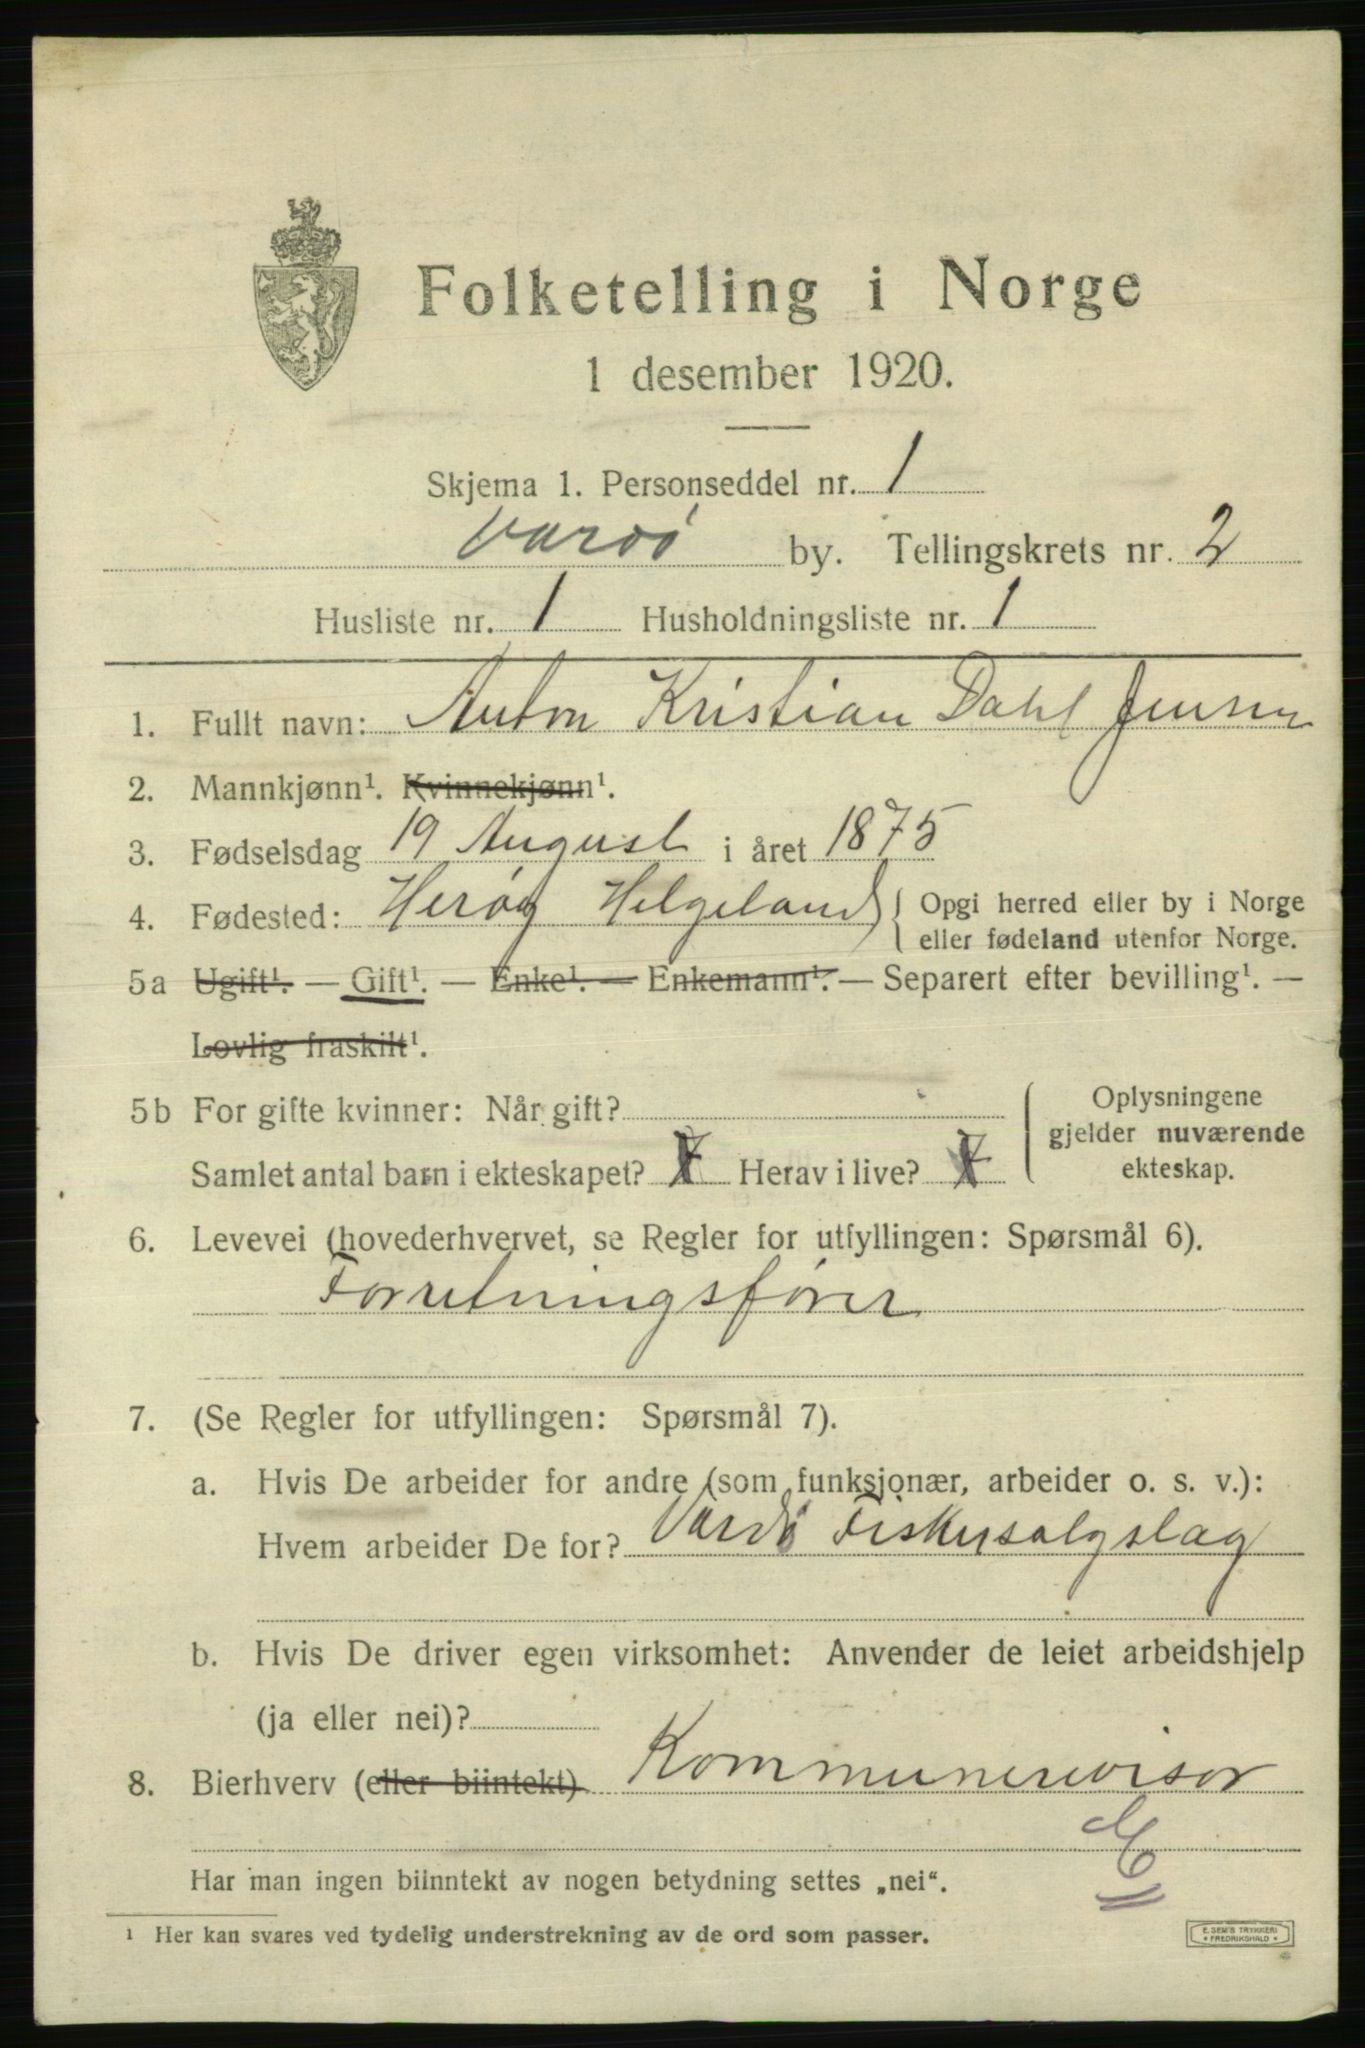 Folketelling i Norge
1 desember 1920.
Skjema 1. Personseddel nr. 1
Vardö by. Tellingskrets nr. 2
Husliste nr. 1 Husholdningsliste nr. 1
1. Fullt navn: Anton Kristian Dahl Jensen
2. Mannkjønn¹. Kvinnekjønn¹.
3. Fødselsdag 19 August i året 1875
4. Fødested: Herøy Helgeland { Opgi herred eller by i Norge
eller fødeland utenfor Norge.
5a Ugift¹. — Gift¹. — Enke¹. — Enkemann¹. — Separert efter bevilling¹. —
Lovlig fraskilt¹.
5b For gifte kvinner: Når gift?
Samlet antal barn i ekteskapet? 7 Herav i live? 7
Oplysningene
gjelder nuværende
ekteskap.
6. Levevei (hovederhvervet, se Regler for utfyllingen: Spørsmål 6).
Forretningsfører
7. (Se Regler for utfyllingen: Spørsmål 7).
a. Hvis De arbeider for andre (som funksjonær, arbeider o. s. v.):
Hvem arbeider De for? Vardö Fiskersalgslag
b. Hvis De driver egen virksomhet: Anvender de leiet arbeidshjelp
(ja eller nei)?
8. Bierhverv (eller biintekt) Kommunerevisor
E
Har man ingen biinntekt av nogen betydning settes „nei“.
¹ Her kan svares ved tydelig understrekning av de ord som passer.
E. SEM'S TRYKKERI
* FREDRIKSHALD *